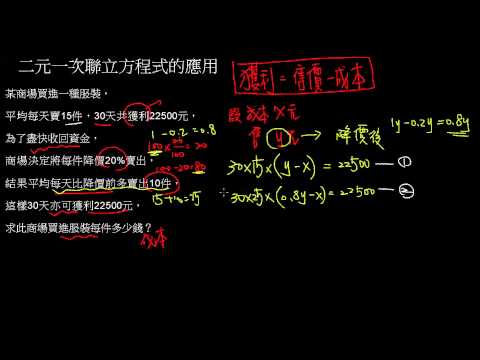 二元一次聯立方程式的應用
獲利=售價-成本
某商場買進一種服裝，
平均每天賣15件，30天共獲利22500元，
為了盡快收回資金，
商場決定將每件降價20%賣出，
結果平均每天比降價前多賣出10件，
這樣30天亦可獲利22500元，
求此商場買進服裝每件多少錢？
成本
1-0.2=0.8
100-20=80
15+10=25
設成本x元
售y元→降價後 1y-0.2y=0.8y
30×15×(y-x)=22500—①
30×25×(0.8y-x)=22500—②